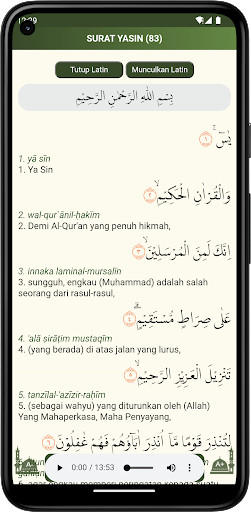 12:29
SURAT YASIN (83)
Tutup Latin
Munculkan Latin
بِسْمِ اللّٰهِ الرَّحْمٰنِ الرَّحِيْمِ
يٰسۤ ۚ ١
1. yā sīn
1. Ya Sin
وَالْقُرْاٰنِ الْحَكِيْمِۙ ٢
2. wal-qur`ānil-ḥakīm
2. Demi Al-Qur'an yang penuh hikmah,
اِنَّكَ لَمِنَ الْمُرْسَلِيْنَۙ ٣
3. innaka laminal-mursalīn
3. sungguh, engkau (Muhammad) adalah salah
seorang dari rasul-rasul,
عَلٰى صِرَاطٍ مُّسْتَقِيْمٍۗ ٤
4. 'alā ṣirāṭim mustaqīm
4. (yang berada) di atas jalan yang lurus,
تَنْزِيْلَ الْعَزِيْزِ الرَّحِيْمِۙ ٥
5. tanzīlal-'azīzir-raḥīm
5. (sebagai wahyu) yang diturunkan oleh (Allah)
Yang Mahaperkasa, Maha Penyayang,
لِتُنْذِرَ قَوْمًا مَّآ اُنْذِرَ اٰبَاۤؤُهُمْ فَهُمْ غٰفِلُوْنَ ٦
0:00 / 13:53
A-
A+